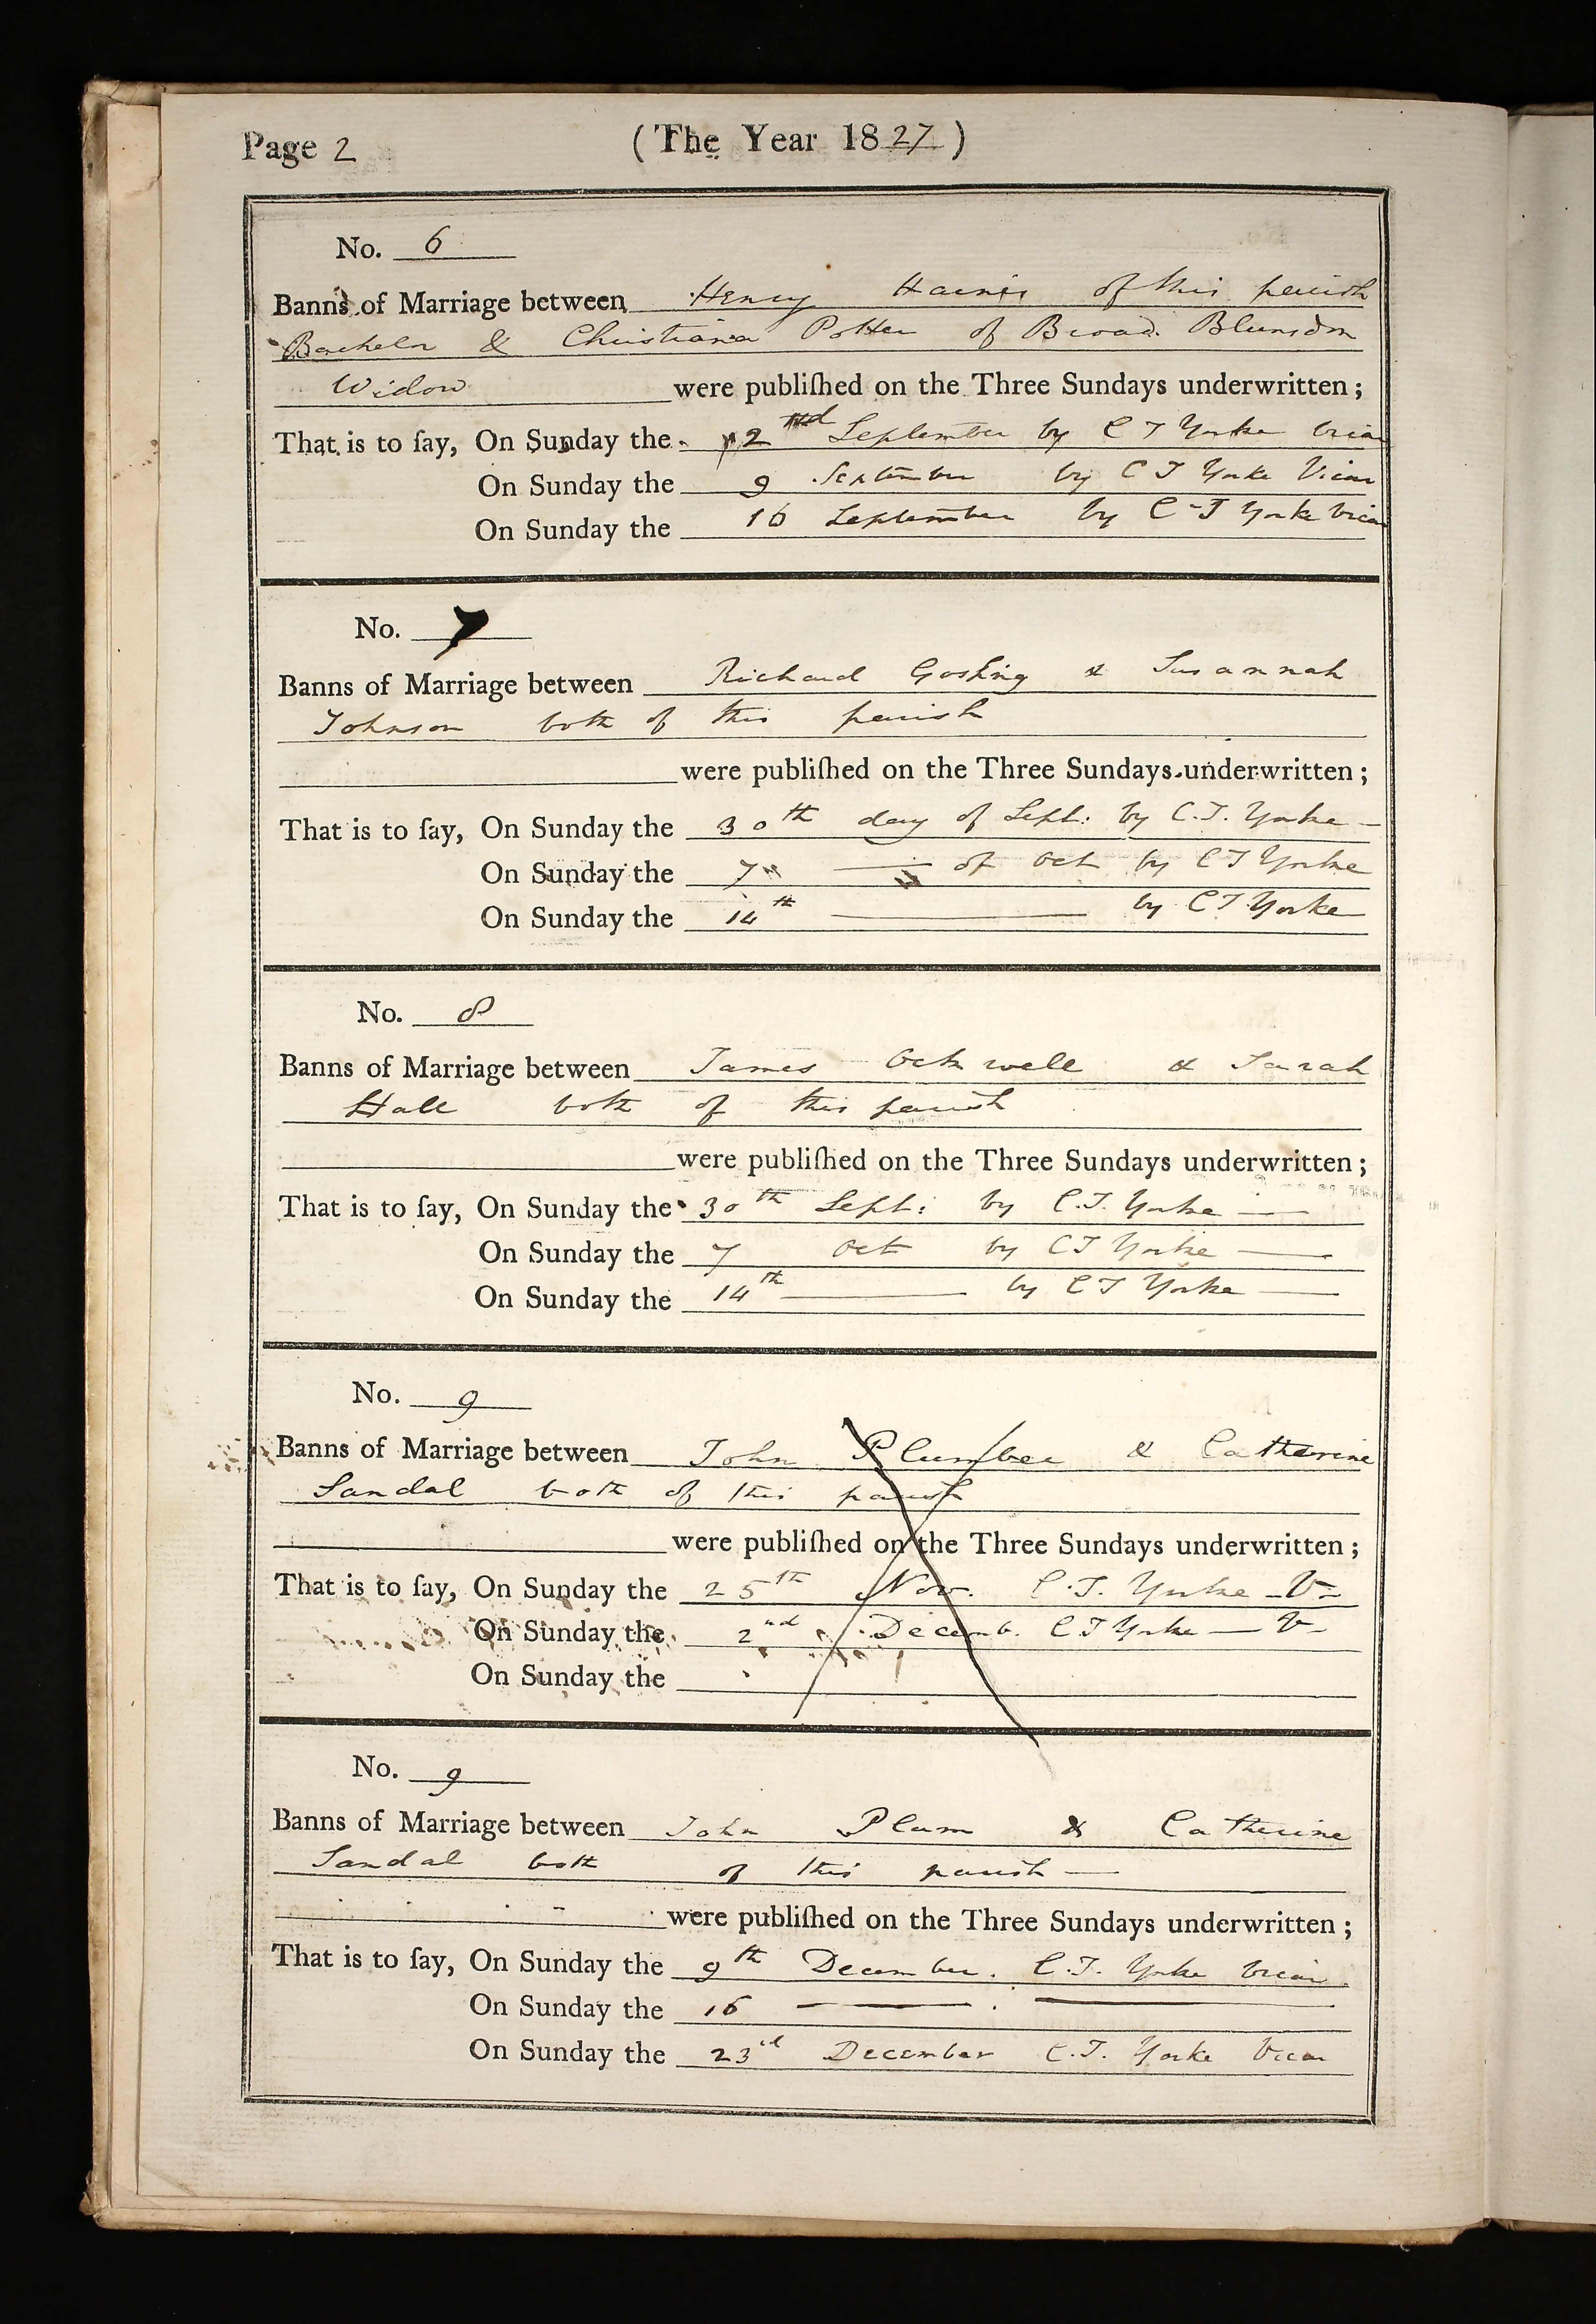 Page 2 (The Year 1827)
No. 6
Banns of Marriage between Henry Haines of this parish
Bachelor & Christiana Potter of Broad Blunsdon
Widow were publiſhed on the Three Sundays underwritten;
That is to ſay, On Sunday the 2nd September by C T Yorke Vicar
On Sunday the 9 September by C T Yorke Vicar
On Sunday the 16 September by C T Yorke Vicar
No. 7
Banns of Marriage between Richard Gosling & Susannah
Johnson both of this parish
were publiſhed on the Three Sundays underwritten;
That is to ſay, On Sunday the 30th day of Sept: by C.T. Yorke —
On Sunday the 7 — of Oct by C T Yorke
On Sunday the 14th — by C T Yorke
No. 8
Banns of Marriage between James Ockwell & Sarah
Hall both of this parish
were publiſhed on the Three Sundays underwritten;
That is to ſay, On Sunday the 30th Sept: by C.T. Yorke —
On Sunday the 7 Oct by C T Yorke —
On Sunday the 14th — by C T Yorke —
No. 9
Banns of Marriage between John Plumber & Catherine
Sandal both of this parish
were publiſhed on the Three Sundays underwritten;
That is to ſay, On Sunday the 25th Nov. C.T. Yorke – V –
On Sunday the 2nd Decemb. C T Yorke — V –
On Sunday the
No. 9
Banns of Marriage between John Plum & Catherine
Sandal both of this parish —
were publiſhed on the Three Sundays underwritten;
That is to ſay, On Sunday the 9th December. C.T. Yorke Vicar.
On Sunday the 16 — —
On Sunday the 23rd December C.T. Yorke Vicar